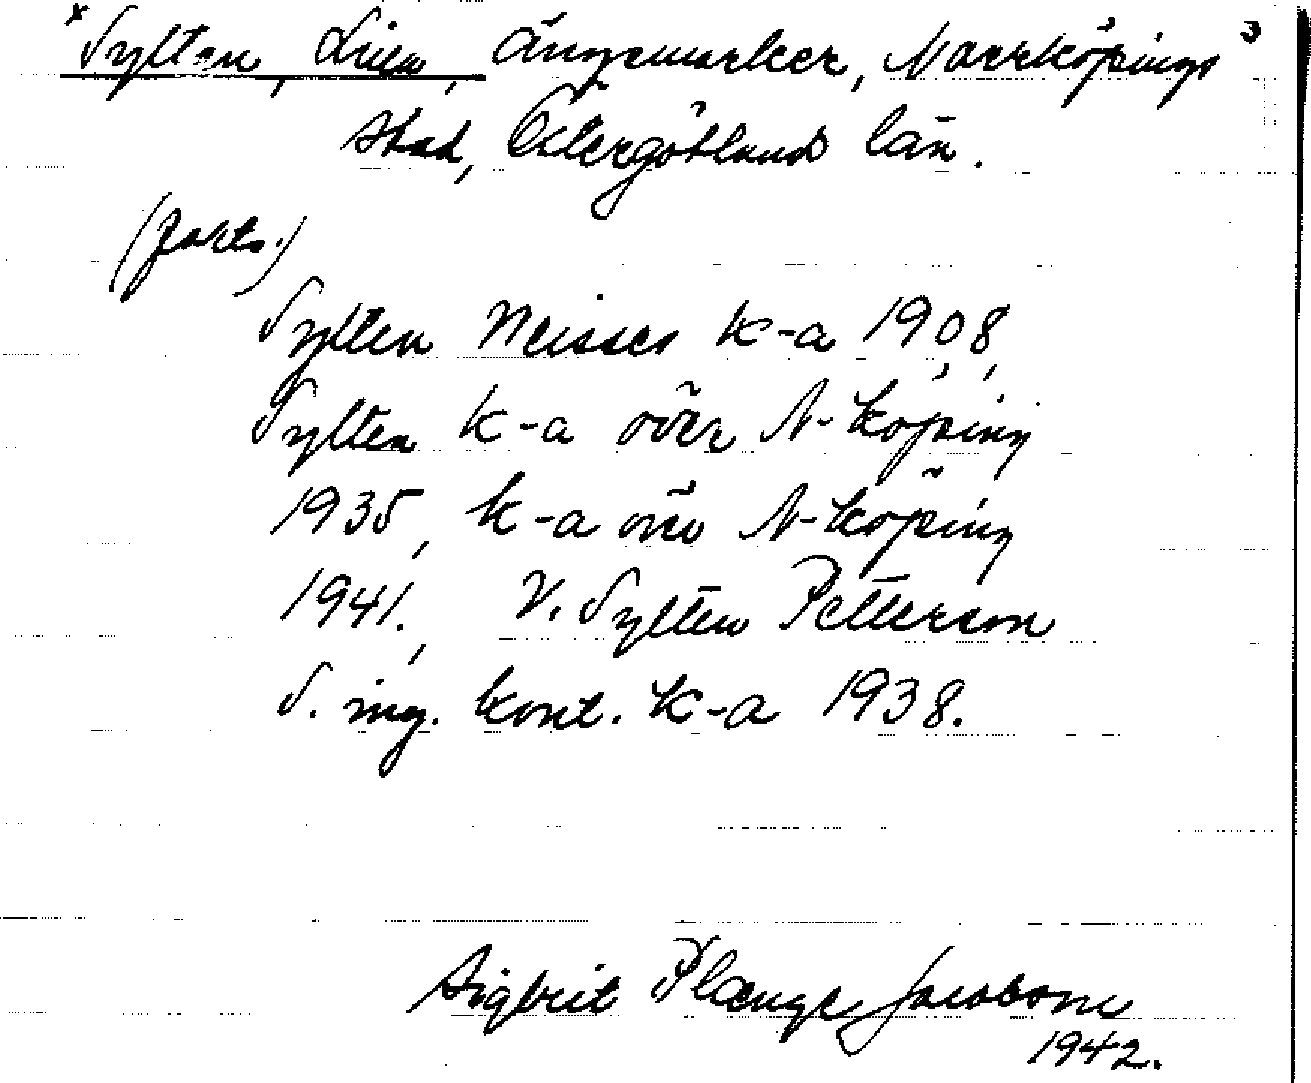 × Sylten, Lilla, Ängsmarker, Norrköpings 3
stad, Östergötland län.
(forts.)
Sylten Meisses k-a 1908,
Sylten k-a över N-köping
1935, k-a öve N-köping
1941., V. Sylten Petterson
S. ing. kont. k-a 1938.
Sigbrit Plænge Jacobson
1942.